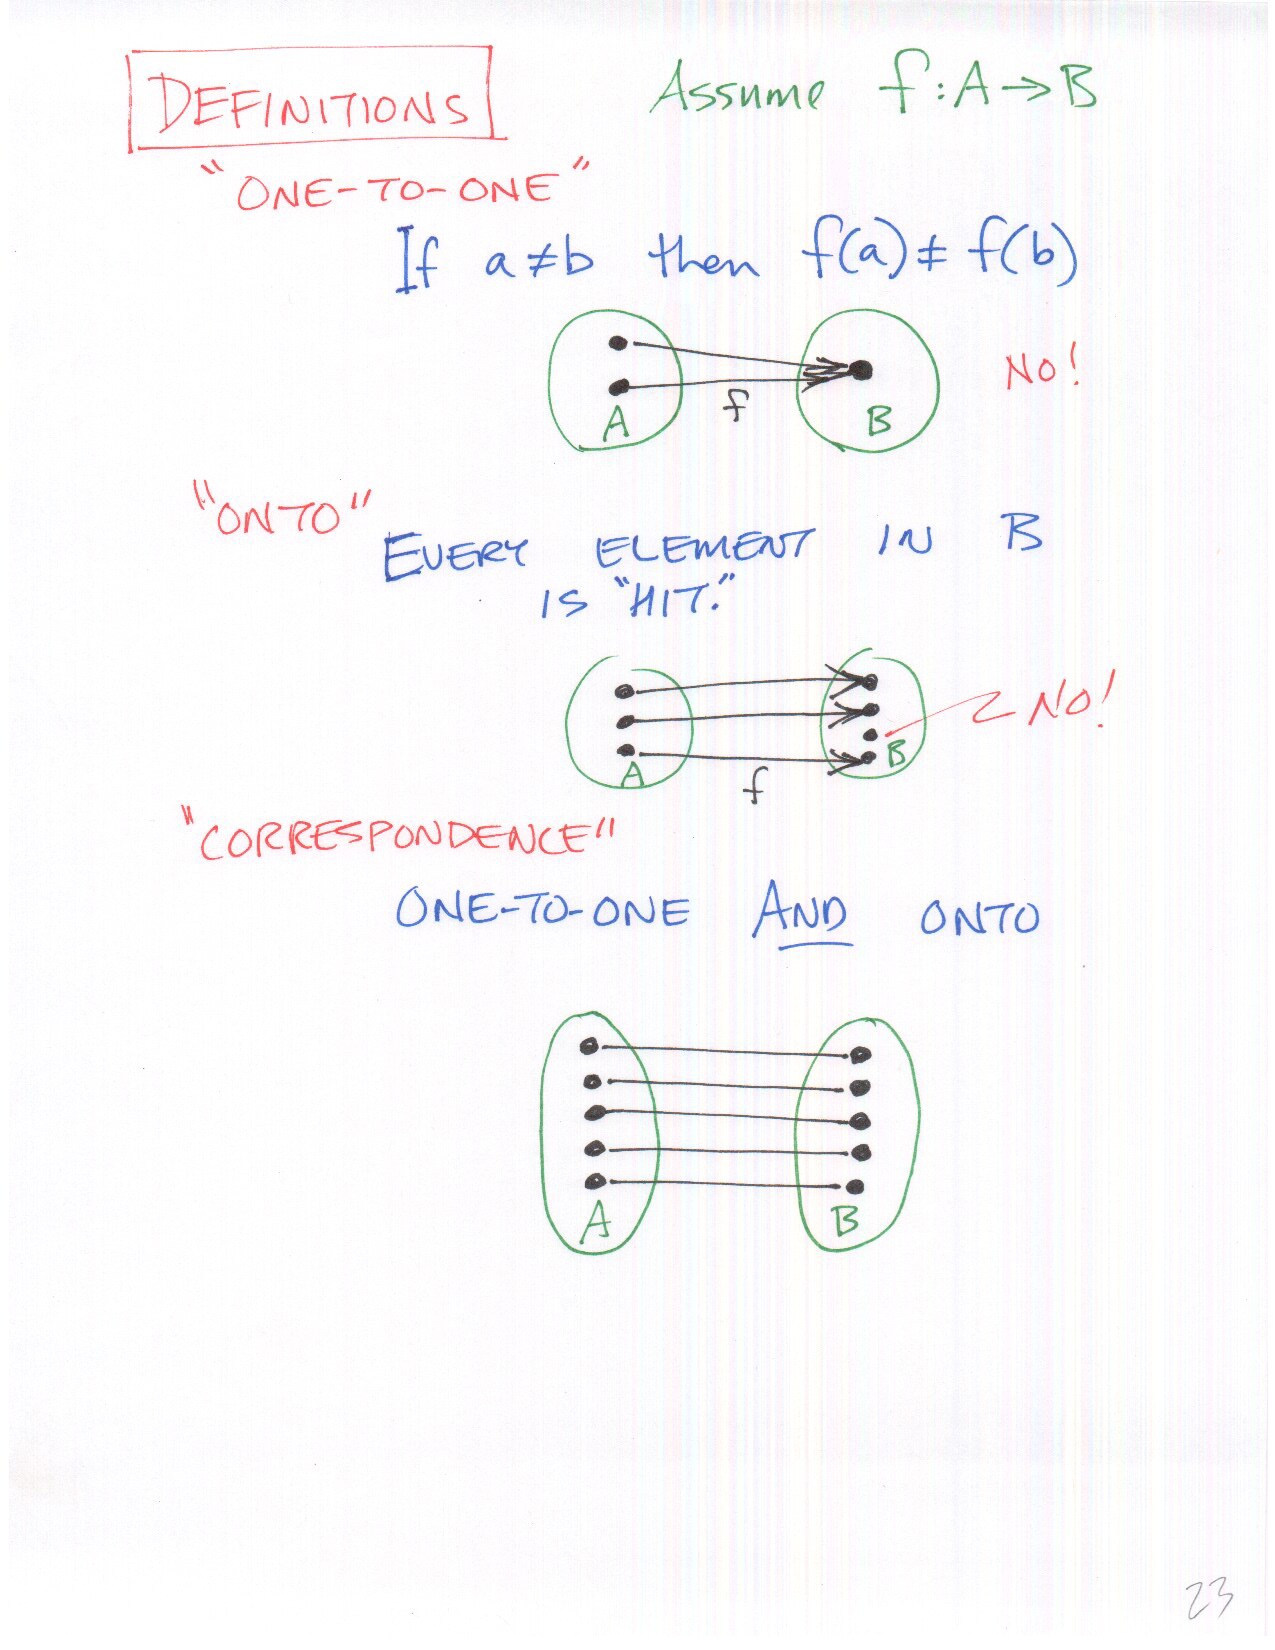 DEFINITIONS
Assume f: A → B
"ONE-TO-ONE"
If a ≠ b then f(a) ≠ f(b)
NO!
f
A
B
"ONTO"
EVERY ELEMENT IN B
IS "HIT."
NO!
B
A
f
"CORRESPONDENCE"
ONE-TO-ONE AND ONTO
A
B
23